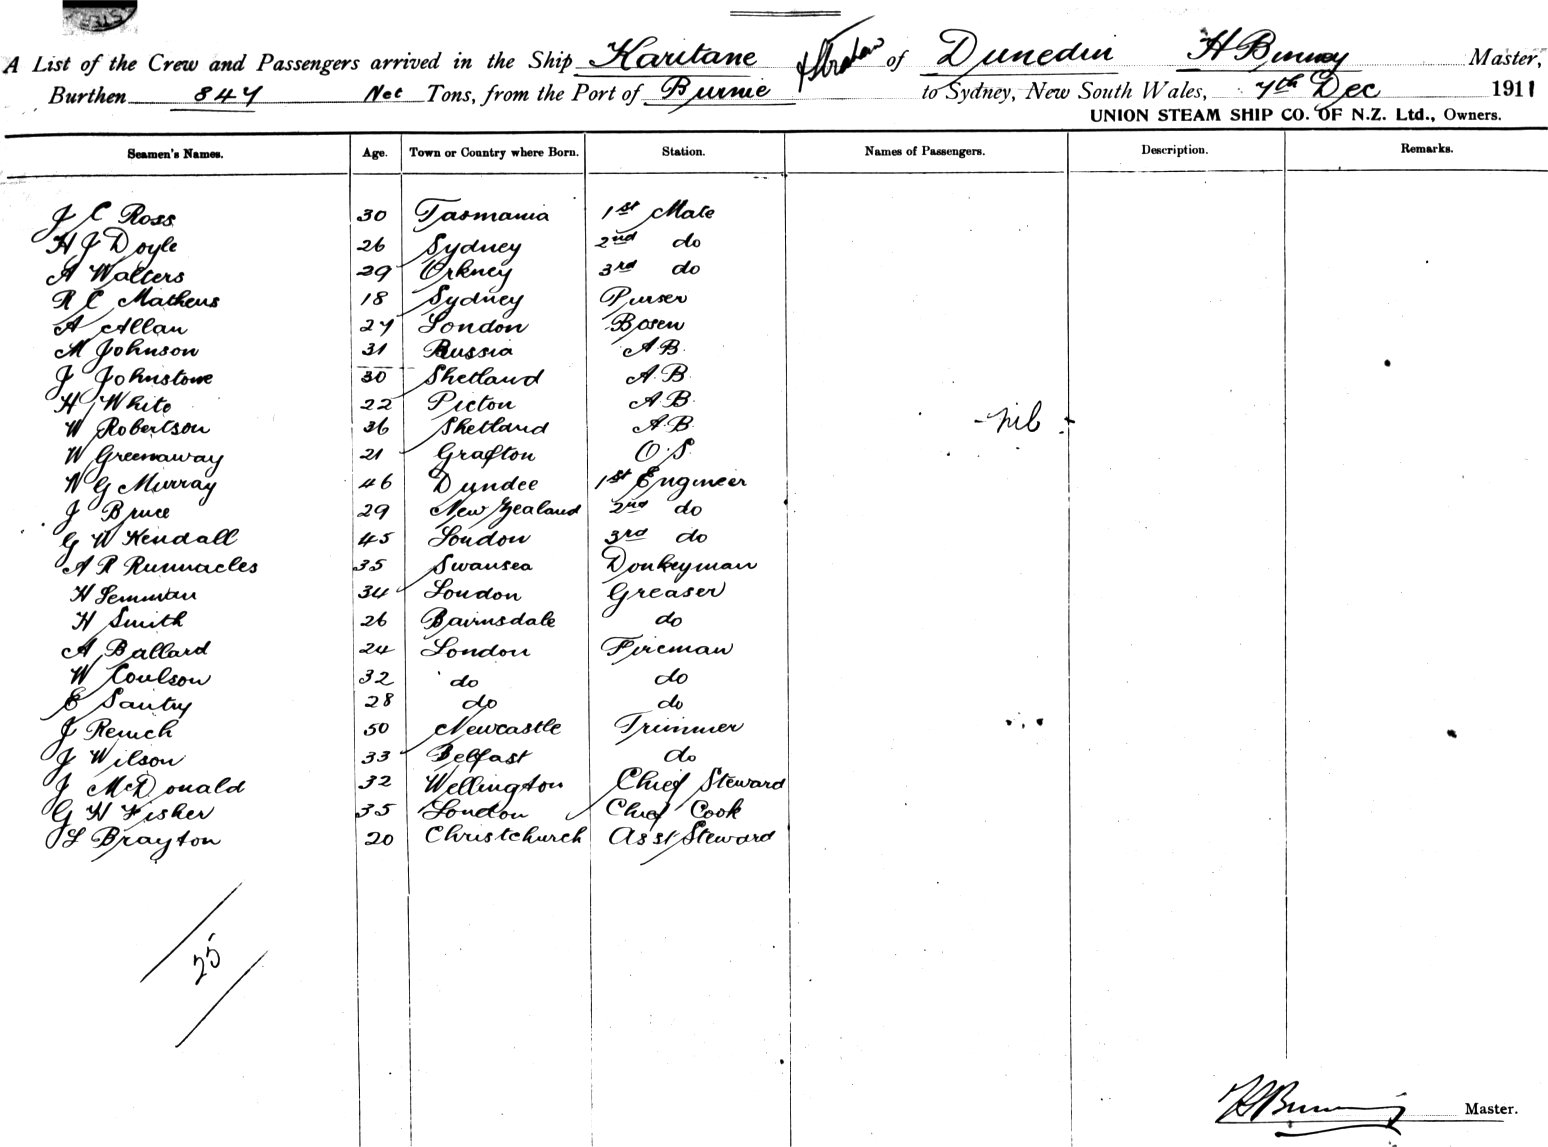 A List of the Crew and Passengers arrived in the Ship Karitane & Strahan of Dunedin H Binney Master,
Burthen 847 Net Tons, from the Port of Burnie to Sydney, New South Wales, 7th Dec 1911
UNION STEAM SHIP CO. OF N.Z. Ltd., Owners.
Seamen's Names. Age. Town or Country where Born. Station. Names of Passengers. Description. Remarks.
J C Ross 30 Tasmania 1st Mate
H J Doyle 26 Sydney 2nd do
A Walters 29 Orkney 3rd do
R C Mathews 18 Sydney Purser
A Allan 27 London Bosen
M Johnson 31 Russia A.B.
J Johnstone 30 Shetland A.B.
H White 22 Picton A.B.
- nil -
W Robertson 36 Shetland A.B.
W Greenaway 21 Grafton O.S.
W G Murray 46 Dundee 1st Engineer
J Bruce 29 New Zealand 2nd do
G W Kendall 45 London 3rd do
A R Runnacles 35 Swansea Donkeyman
H 34 London Greaser
H Smith 26 Bairnsdale do
A Ballard 24 London Fireman
W Coulson 32 do do
E Santry 28 do do
J 50 Newcastle Trimmer
J Wilson 33 Belfast do
J McDonald 32 Wellington Chief Steward
G H Fisher 35 London Chief Cook
L Brayton 20 Christchurch Asst Steward
25
H Binney Master.